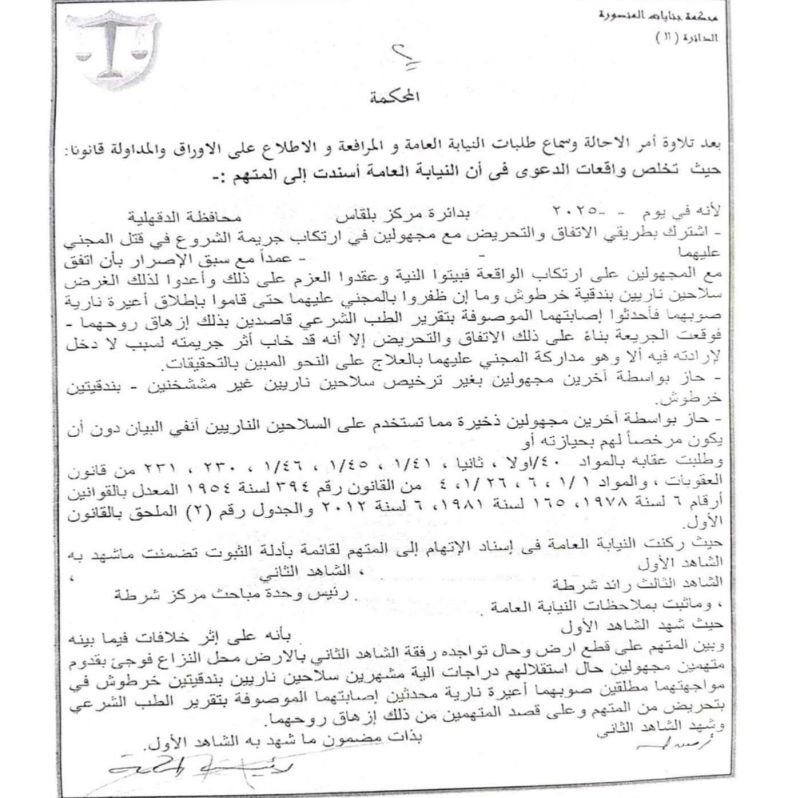 محكمة جنايات المنصورة
الدائرة (١١)
٢
المحكمة
بعد تلاوة أمر الاحالة وسماع طلبات النيابة العامة و المرافعة و الاطلاع على الاوراق والمداولة قانونا:
حيث تخلص واقعات الدعوى فى أن النيابة العامة أسندت إلى المتهم :-
لأنه في يوم - -٢٠٢٥ بدائرة مركز بلقاس محافظة الدقهلية
- اشترك بطريقي الاتفاق والتحريض مع مجهولين في ارتكاب جريمة الشروع في قتل المجني
عليهما - عمداً مع سبق الإصرار بأن اتفق
مع المجهولين على ارتكاب الواقعة فبيتوا النية وعقدوا العزم على ذلك وأعدوا لذلك الغرض
سلاحين ناريين بندقية خرطوش وما إن ظفروا بالمجني عليهما حتى قاموا بإطلاق أعيرة نارية
صوبهما فأحدثوا إصابتهما الموصوفة بتقرير الطب الشرعي قاصدين بذلك إزهاق روحهما -
فوقعت الجريعة بناءً على ذلك الاتفاق والتحريض إلا أنه قد خاب أثر جريمته لسبب لا دخل
لإرادته فيه ألا وهو مداركة المجني عليهما بالعلاج على النحو المبين بالتحقيقات.
- حاز بواسطة آخرين مجهولين بغير ترخيص سلاحين ناريين غير مششخنين - بندقيتين
خرطوش.
- حاز بواسطة آخرين مجهولين ذخيرة مما تستخدم على السلاحين الناريين آنفي البيان دون أن
يكون مرخصاً لهم بحيازته أو
وطلبت عقابه بالمواد ٤٠/اولا ، ثانيا ، ١/٤١ ، ١/٤٥ ، ١/٤٦ ، ٢٣٠ ، ٢٣١ من قانون
العقوبات ، والمواد ١/١ ، ٦ ، ١/٢٦، ٤ من القانون رقم ٣٩٤ لسنة ١٩٥٤ المعدل بالقوانين
أرقام ٦ لسنة ١٩٧٨، ١٦٥ لسنة ١٩٨١، ٦ لسنة ٢٠١٢ والجدول رقم (٢) الملحق بالقانون
الأول.
حيث ركنت النيابة العامة فى إسناد الإتهام إلى المتهم لقائمة بأدلة الثبوت تضمنت ماشهد به
الشاهد الأول ، الشاهد الثاني ،
الشاهد الثالث رائد شرطة رئيس وحدة مباحث مركز شرطة
، وماثبت بملاحظات النيابة العامة
حيث شهد الشاهد الأول بأنه على إثر خلافات فيما بينه
وبين المتهم على قطع ارض وحال تواجده رفقة الشاهد الثاني بالارض محل النزاع فوجئ بقدوم
متهمين مجهولين حال استقلالهم دراجات الية مشهرين سلاحين ناريين بندقيتين خرطوش في
مواجهتهما مطلقين صوبهما أعيرة نارية محدثين إصابتهما الموصوفة بتقرير الطب الشرعي
بتحريض من المتهم وعلى قصد المتهمين من ذلك إزهاق روحهما.
وشهد الشاهد الثاني بذات مضمون ما شهد به الشاهد الأول.
رئيس المحكمة